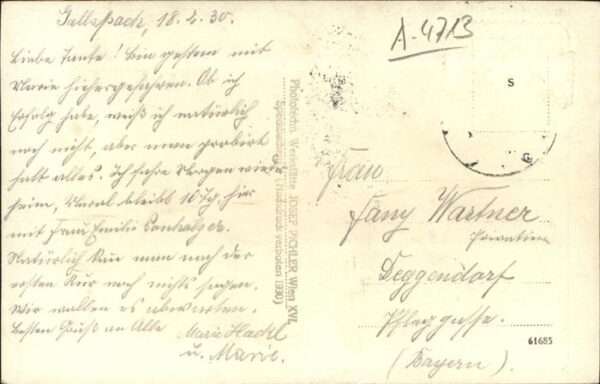 Gallspach, 18.2.30.
Liebe Tante! Bin gestern mit
Marie hiehergefahren. Ob ich
Erfolg habe, weiß ich natürlich
noch nicht, aber man probirt
halt alles. Ich fahre Morgen wieder
heim, bleibt 10 Tg. hier
mit Frau Emilie
Natürlich kan man nach der
ersten Kur noch nichts sagen.
Wir wollen es abwarten.
Besten Gruß an Alle
Marie Hackl
u. Marie.
Photochem. Werkstätte JOSEF PICHLER Wien XVI.
(Nachdruck verboten 1930)
A-4713
S
G
Frau
Fany Wartner
Privatiere
Deggendorf
Pfleggasse.
(Bayern)
61685